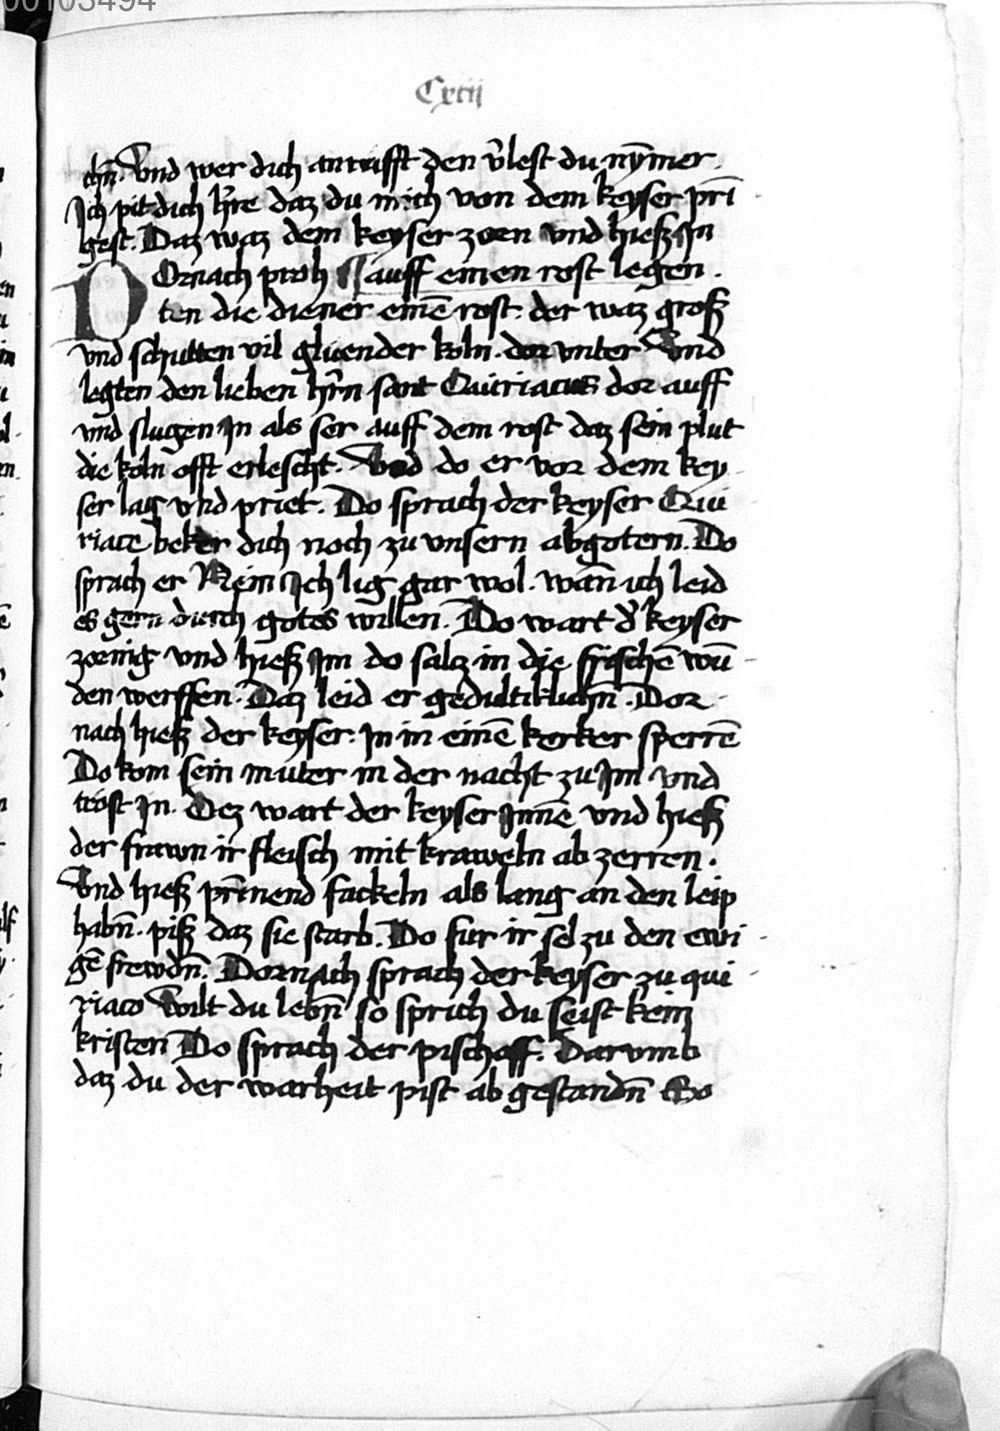 00103494
Cxcij
chn̄. Vnd wer dich an rufft den v̓lest du nȳmer
Ich pit dich h̓re daz du mich von dem keyser prī
gest. Daz waz dem keyser zorn vnd hieß In
Ornach proh auff einen rost legen.
ten die diener einē rost. der waz groß
vnd schutten vil gluender koln. dor vnter Vnd
legten den lieben hr̄n sant Quiriacus dor auff
vnd slugen In als ser auff dem rost daz sein plut
die koln offt erlescht. Vnd do er vor dem key
ser lag vnd priet. Do sprach der keyser Qui
riace beker dich noch zu vnsern abgotern. Do
sprach er Nein Ich lig gar wol. wan̄ ich leid
es gern durch gotes willen. Do wart d̓ keyser
zornig vnd hieß Im do salcz in die frischē wū
den werffen. Daz leid er gedultiklichn̄. Dor
nach hieß der keyser. In in einē kerker sperrē
Do kom sein muter in der nacht zu Im vnd
tröst In. Dez wart der keyser Innē vnd hieß
der frawn ir fleisch mit kraweln ab zerren.
Vnd hieß prīnend fackeln als lang an den leip
habn̄. piß daz sie starb. Do fur ir sel zu den ewi
gē frewdn̄. Dornach sprach der keyser zu qui
riaco Wilt du lebn̄ so sprich du seist kein
kristen Do sprach der pischoff. Darvmb
daz du der warheit pist ab gestandn̄ So